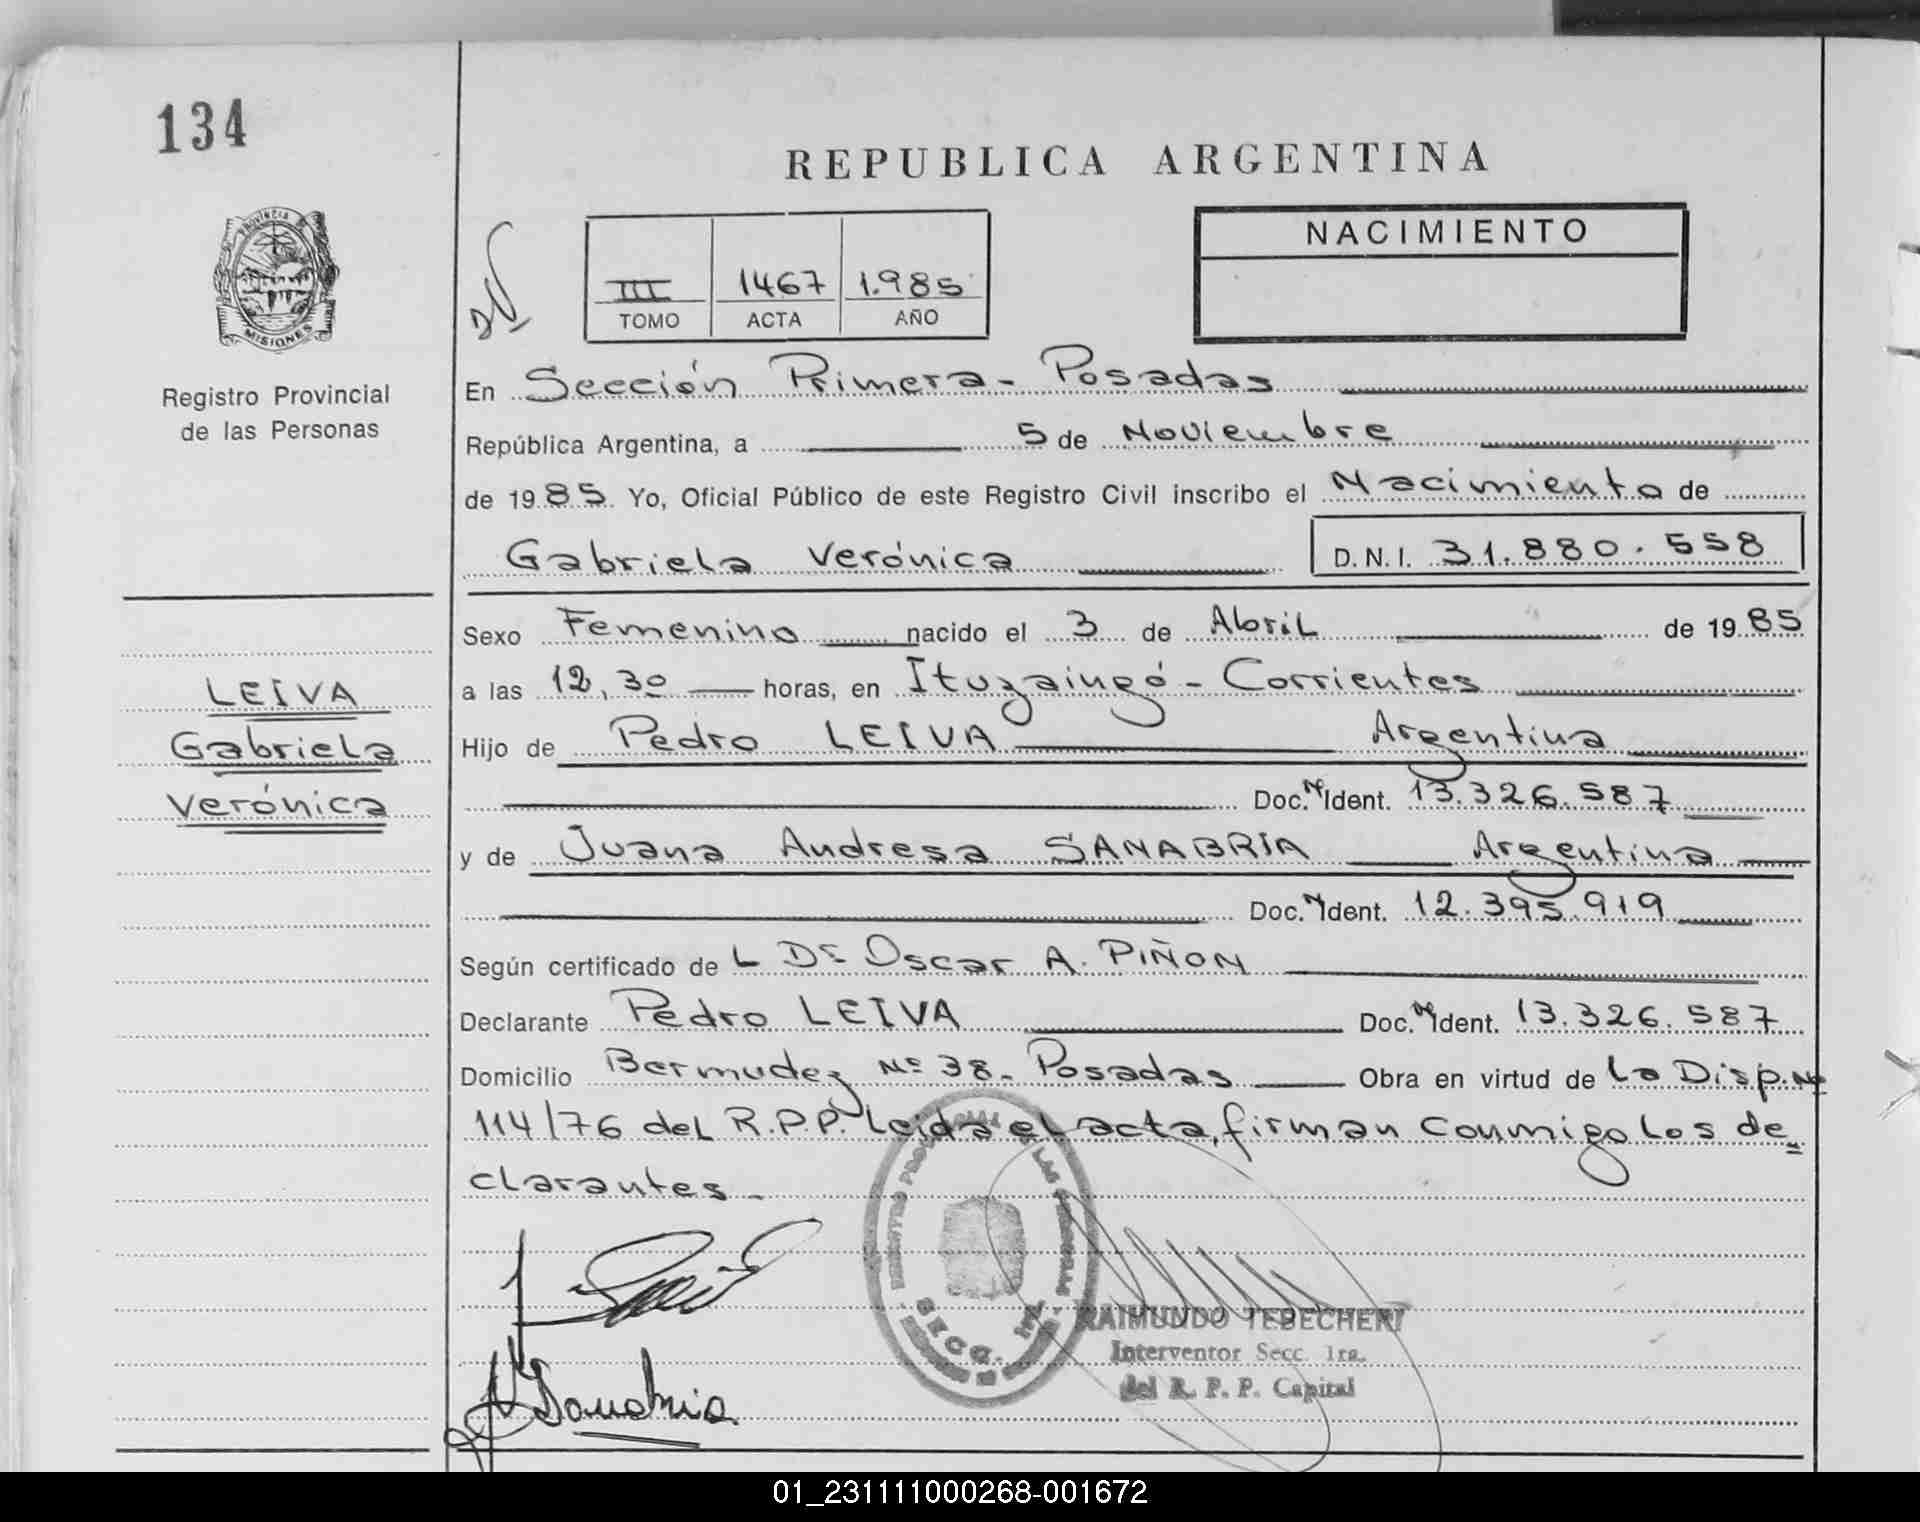 134
REPUBLICA ARGENTINA
PROVINCIA
MISIONES
Registro Provincial
de las Personas
III 1467 1.985
TOMO ACTA AÑO
NACIMIENTO
En Sección Primera - Posadas
República Argentina, a 5 de Noviembre
de 1985. Yo, Oficial Público de este Registro Civil inscribo el Nacimiento de
Gabriela Verónica D.N.I. 31.880.558
Sexo Femenino nacido el 3 de Abril de 1985
a las 12,30 horas, en Ituzaingó - Corrientes
Hijo de Pedro LEIVA Argentina
Doc. N Ident. 13.326.587
y de Juana Andresa SANABRIA Argentina
Doc. N Ident. 12.395.919
Según certificado de L Dr Oscar A. PIÑON
Declarante Pedro LEIVA Doc. N Ident. 13.326.587
Domicilio Bermudez Nº 38. Posadas Obra en virtud de La Disp. Nº
114/76 del R.P.P. Leida el acta, firman conmigo los de=
clarantes -
LEIVA
Gabriela
Verónica
SECC. 1ra.
RAIMUNDO TEBECHERI
Interventor Secc. 1ra.
del R. P. P. Capital
Sanabria
01_231111000268-001672